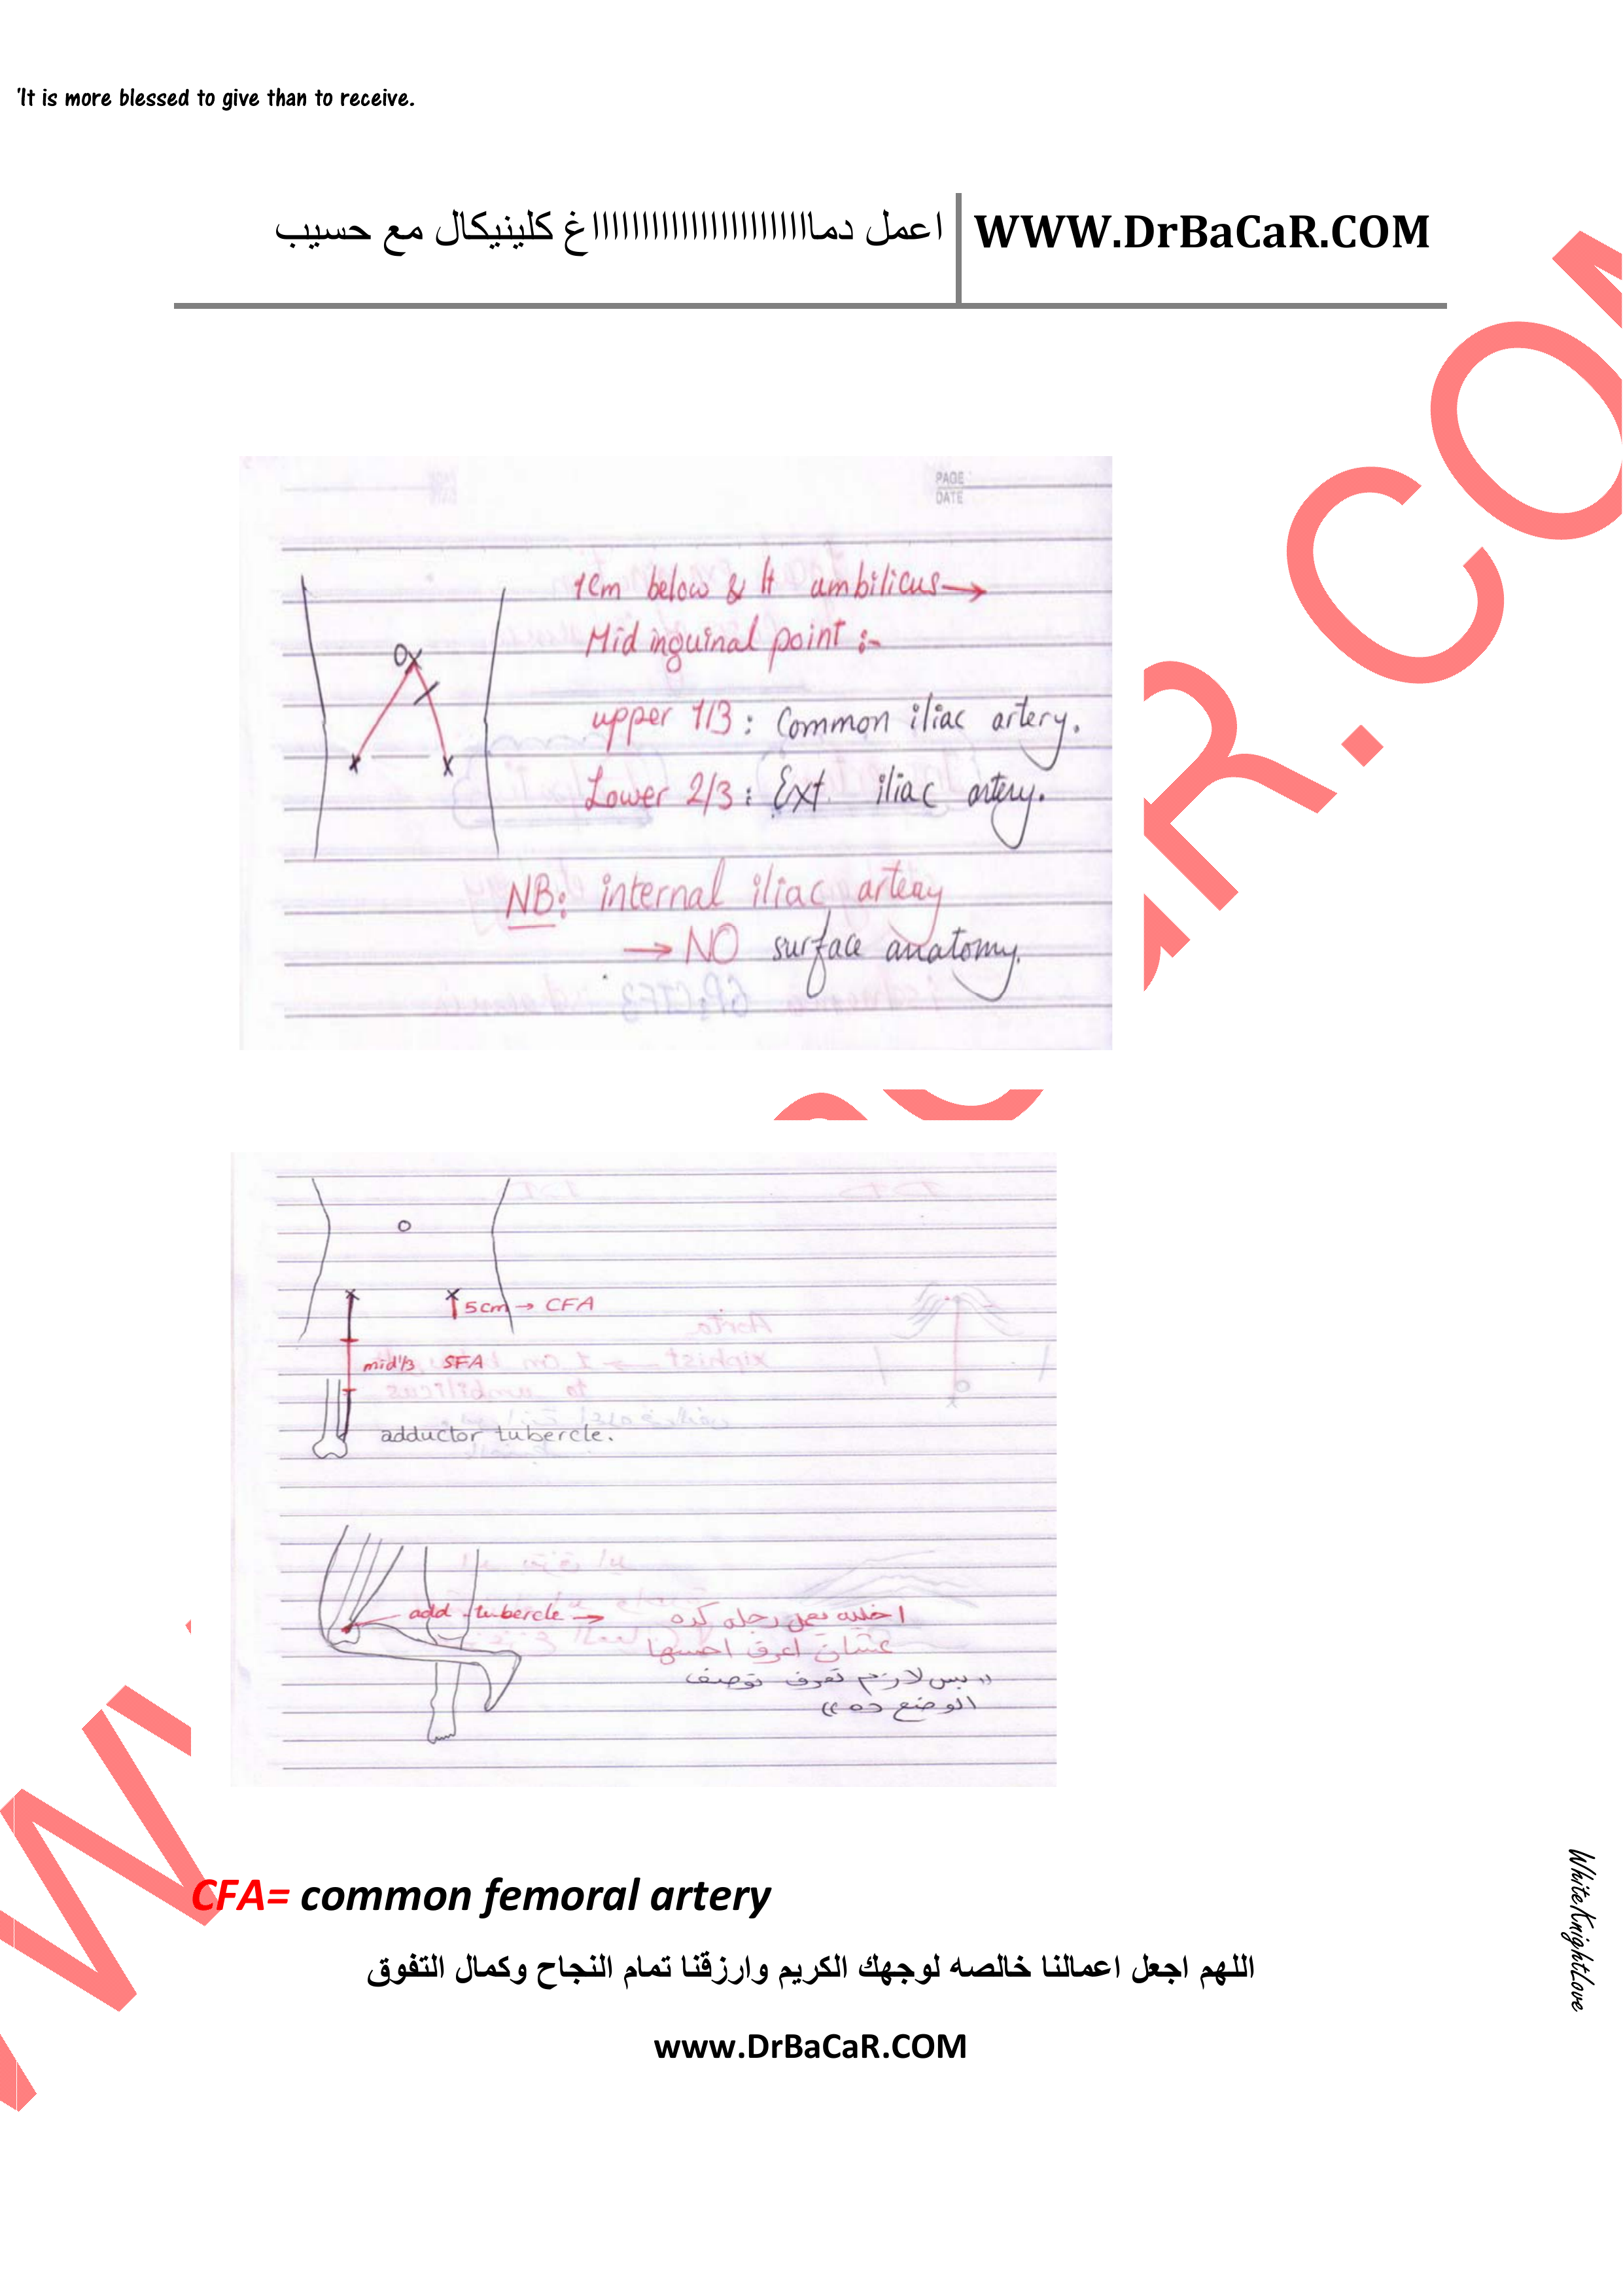 'It is more blessed to give than to receive.
اعمل دمااااااااااااااااااااااغ كلينيكال مع حسيب
WWW.DrBaCaR.COM
PAGE
DATE
1cm below & lt ambilicus →
Mid inguinal point :-
upper 1/3 : Common iliac artery.
Lower 2/3 : Ext. iliac artery.
NB: internal iliac artery
→ NO surface anatomy.
5cm → CFA
mid 1/3 SFA
adductor tubercle.
add. tubercle →
اخليه يعمل رجله كده
عشان اعرف احسها
"بس لازم تعرف توصف
الوضع ده"
CFA= common femoral artery
اللهم اجعل اعمالنا خالصه لوجهك الكريم وارزقنا تمام النجاح وكمال التفوق
www.DrBaCaR.COM
WhiteKnightLove